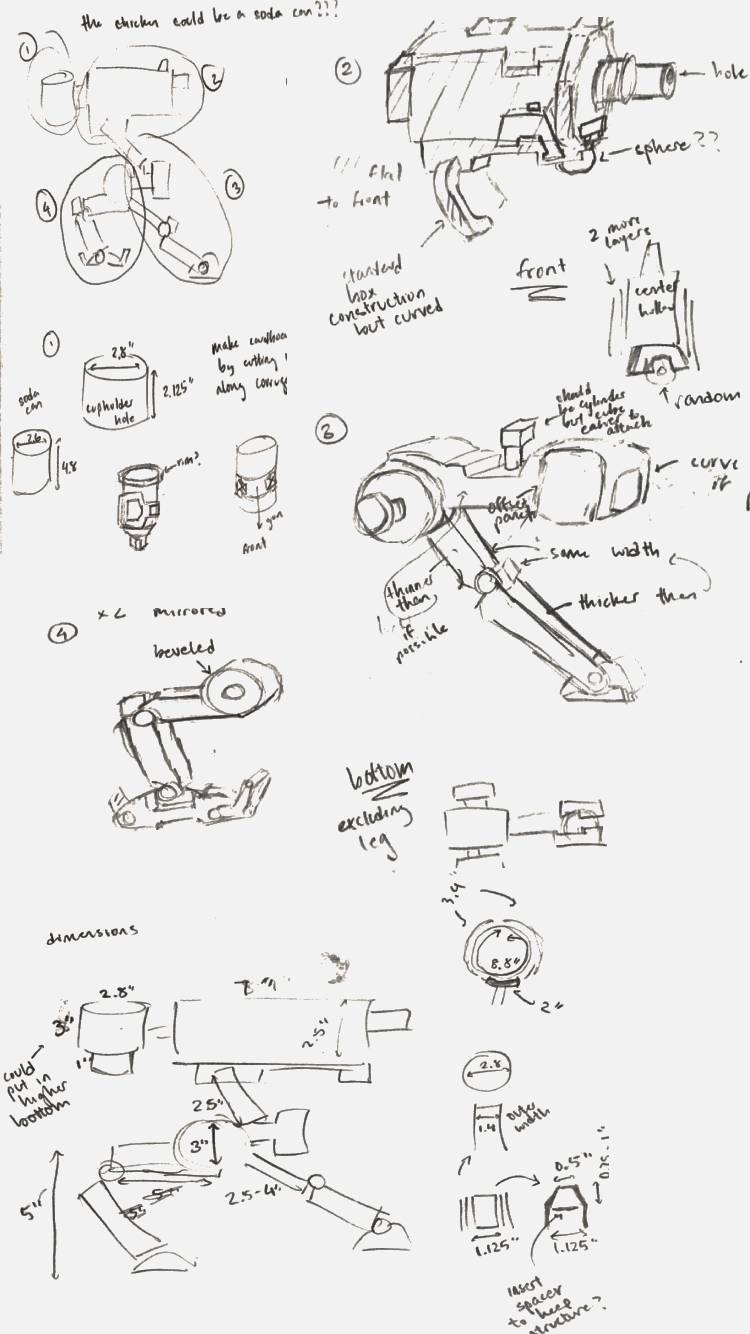 the chicken could be a soda can???
1
2
3
4
2
hole
sphere??
/// flat
to front
standard
box
construction
but curved
front
2 more
layers
center
hollow
random
1
2.8"
2.125"
cupholder
hole
soda
can
2.6
4.8
make
by cutting
along
rim?
gun
front
3
should
be cylinder
but cube
easier to
attach
curve
if
offset
panel
same width
thicker than
thinner
than
if
possible
4
x2 mirrored
beveled
bottom
excluding
leg
3.4"
8.8"
2"
dimensions
2.8"
3"
1"
could
put in
higher
bottom
2.5"
2.5"
3"
2.5-4"
5"
2.8
1.4
outer
width
0.5"
0.75-1"
1.125"
1.125"
insert
spacer
to keep
structure?